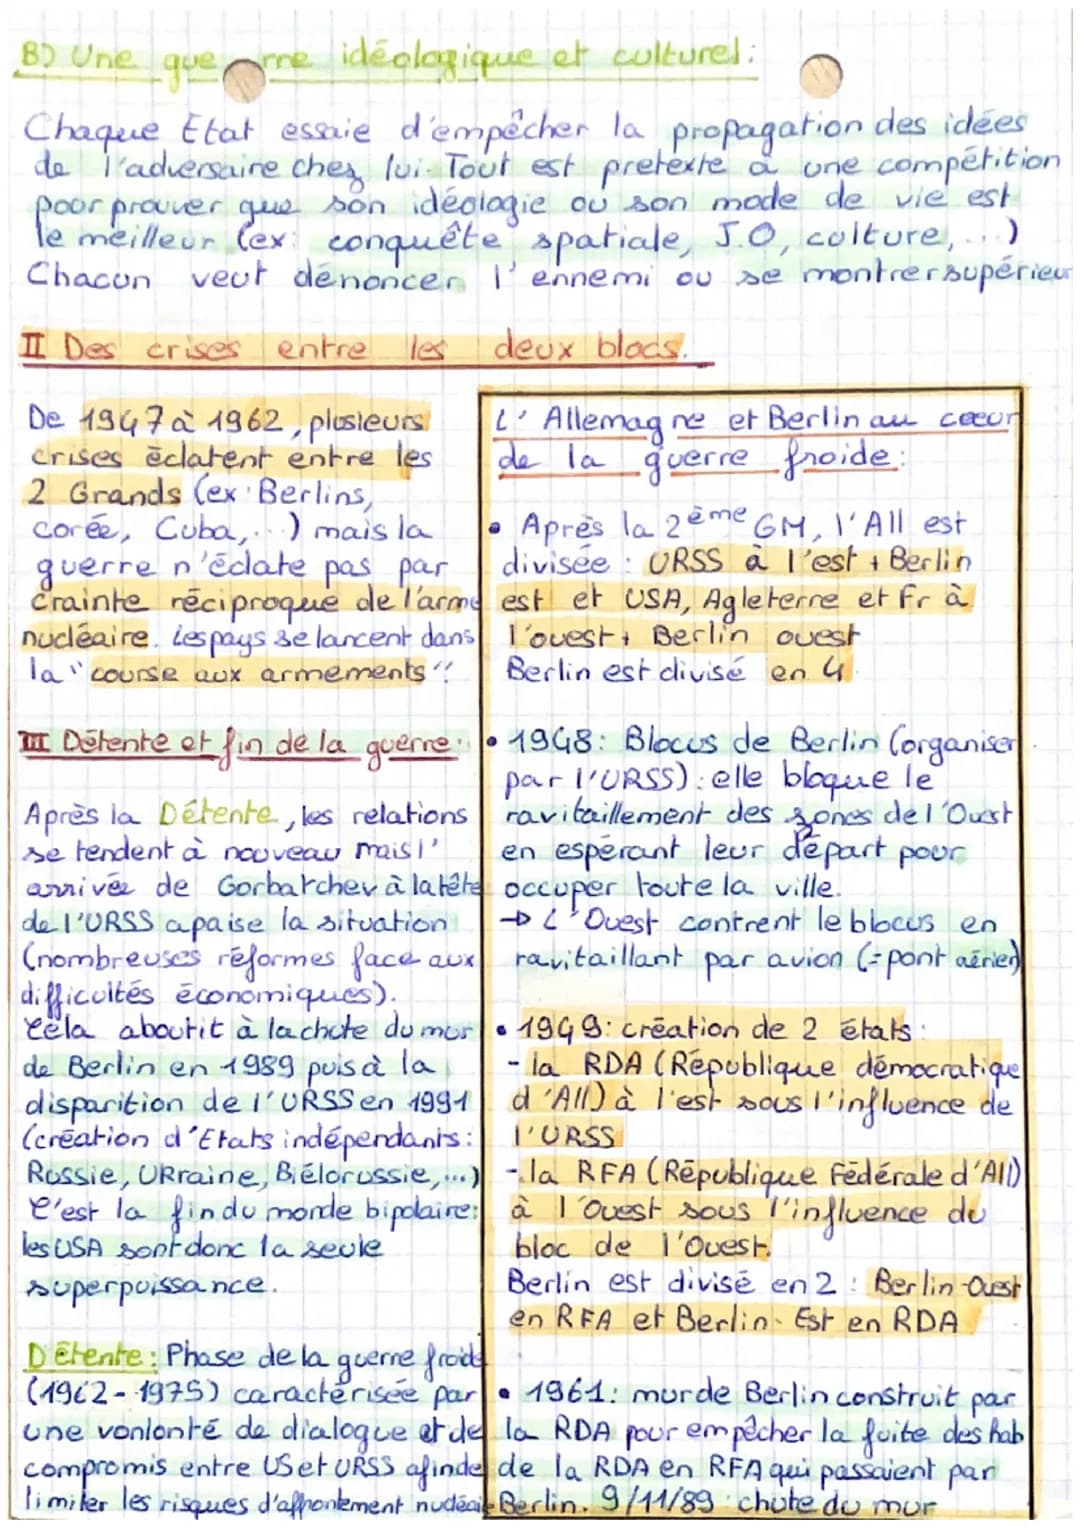 B) Une gue rre idéologique et culturel :
Chaque Etat essaie d'empêcher la propagation des idées
de l'adversaire chez lui. Tout est pretexte à une compétition
pour prouver que son idéologie ou son mode de vie est
le meilleur (ex: conquête spatiale, J.O, culture, ...)
Chacun veut dénoncer l'ennemi ou se montrer supérieur
II Des crises entre les deux blocs.
De 1947 à 1962, plusieurs
crises éclatent entre les
2 Grands (ex: Berlins,
corée, Cuba, ...) mais la
guerre n'éclate pas par
crainte réciproque de l'arme
nucléaire. Les pays se lancent dans
la "course aux armements".
III Détente et fin de la guerre :
Après la Détente, les relations
se tendent à nouveau mais l'
arrivée de Gorbatchev à la tête
de l'URSS apaise la situation
(nombreuses réformes face aux
difficultés économiques).
Cela aboutit à la chute du mur
de Berlin en 1989 puis à la
disparition de l'URSS en 1991
(création d'Etats indépendants :
Russie, Ukraine, Biélorussie, ...)
C'est la fin du monde bipolaire:
les USA sont donc la seule
superpuissance.
Détente : Phase de la guerre froide
(1962-1975) caractérisée par
une vonlonté de dialogue et de
compromis entre US et URSS afin de
limiter les risques d'affrontement nucléaie
L'Allemagne et Berlin au cœur
de la guerre froide :
• Après la 2ème GM, l'All est
divisée : URSS à l'est + Berlin
est et USA, Agleterre et Fr à
l'ouest + Berlin ouest
Berlin est divisé en 4
• 1948: Blocus de Berlin (organiser
par l'URSS) : elle bloque le
ravitaillement des zones de l'Ouest
en espérant leur départ pour
occuper toute la ville.
→ L'Ouest contrent le blocus en
ravitaillant par avion (= pont aérien)
• 1949: création de 2 états :
- la RDA (République démocratique
d'All) à l'est sous l'influence de
l'URSS
- la RFA (République Fédérale d'All)
à l'Ouest sous l'influence du
bloc de l'Ouest.
Berlin est divisé en 2 : Berlin-Ouest
en RFA et Berlin-Est en RDA
• 1961: mur de Berlin construit par
la RDA pour empêcher la fuite des hab
de la RDA en RFA qui passaient par
Berlin. 9/11/89 chute du mur